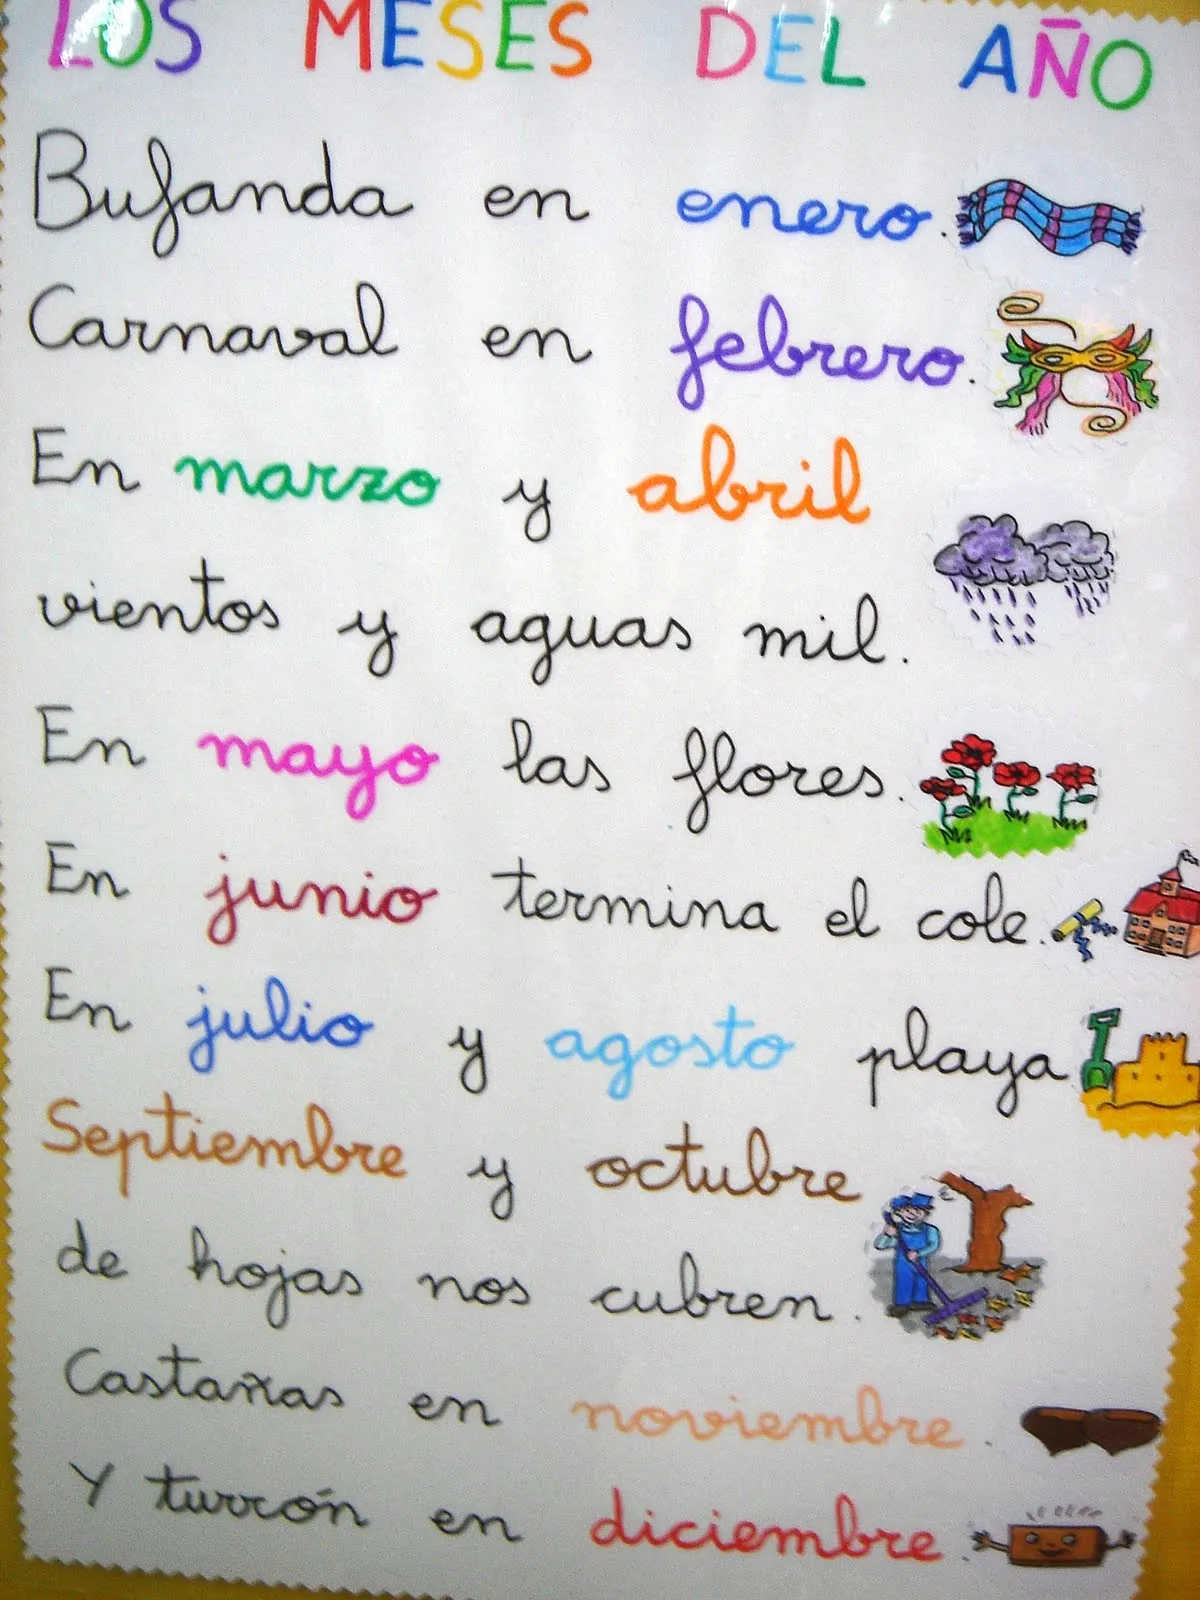 LOS MESES DEL AÑO
Bufanda en enero.
Carnaval en febrero.
En marzo y abril
vientos y aguas mil.
En mayo las flores.
En junio termina el cole.
En julio y agosto playa
Septiembre y octubre
de hojas nos cubren.
Castañas en noviembre.
Y turrón en diciembre.